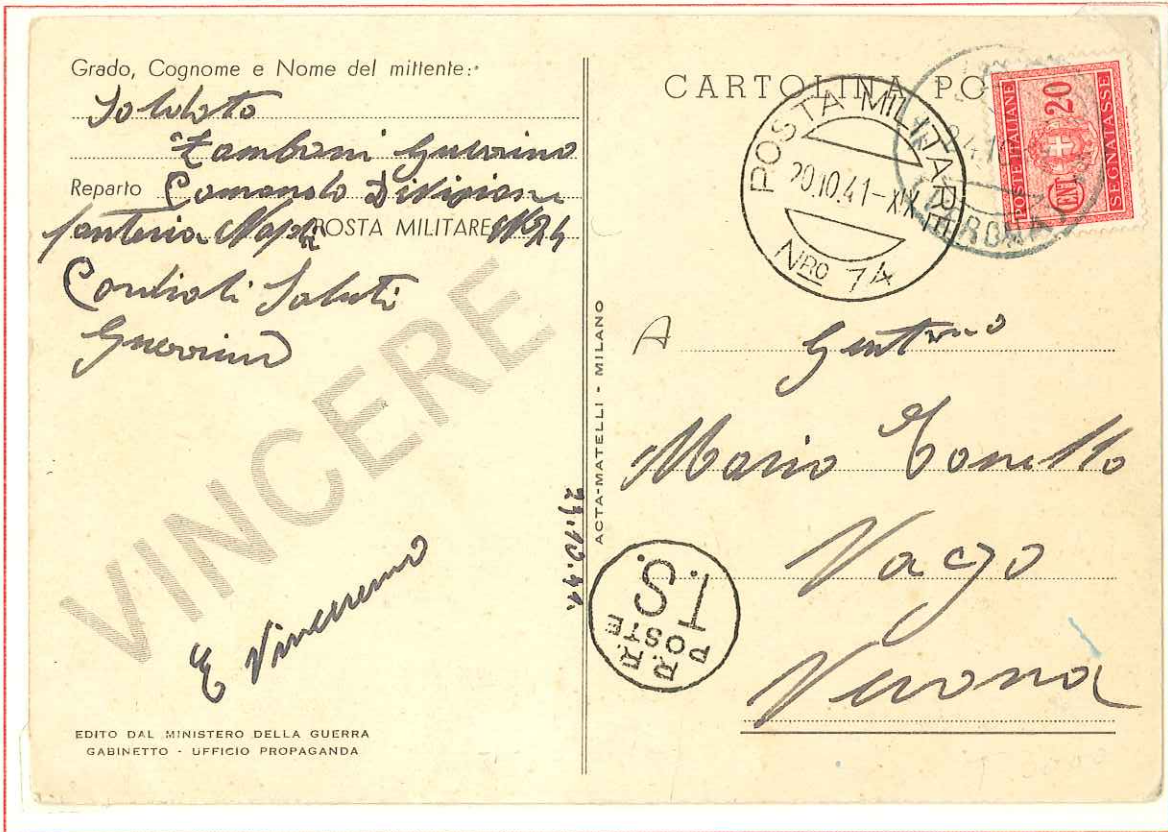 Grado, Cognome e Nome del mittente:
Soldato
Zamboni Guerrino
Reparto Comando Divisione
fanteria POSTA MILITARE N 24
Cordiali Saluti
Guerrino
VINCERE
E Vinceremo
EDITO DAL MINISTERO DELLA GUERRA
GABINETTO - UFFICIO PROPAGANDA
ACTA-MATELLI - MILANO
CARTOLINA PO
POSTA MILITARE
20.10.41-XIX
NRO 74
POSTE ITALIANE
CENT 20
SEGNATASSE
A
Mario
Vago
Verona
T.S.
R.R.
POSTE